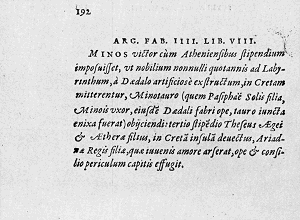 192
ARG. FAB. IIII. LIB. VIII.
MINOS victor cùm Atheniensibus stipendium
imposuisset, vt nobilium nonnulli quotannis ad Laby-
rinthum, à Dædalo artificiosè exstructum, in Cretam
mitterentur, Minotauro (quem Pasiphaë Solis filia,
Minois vxor, eiusdē Dædali fabri ope, tauro iuncta
enixa fuerat) obijciendi: tertio stipēdio Theseus Ægei
& Æthera filius, in Cretā insulā deuectus, Ariad-
na Regis filiæ, quæ iuuenis amore arserat, ope & consi-
lio periculum capitis effugit.